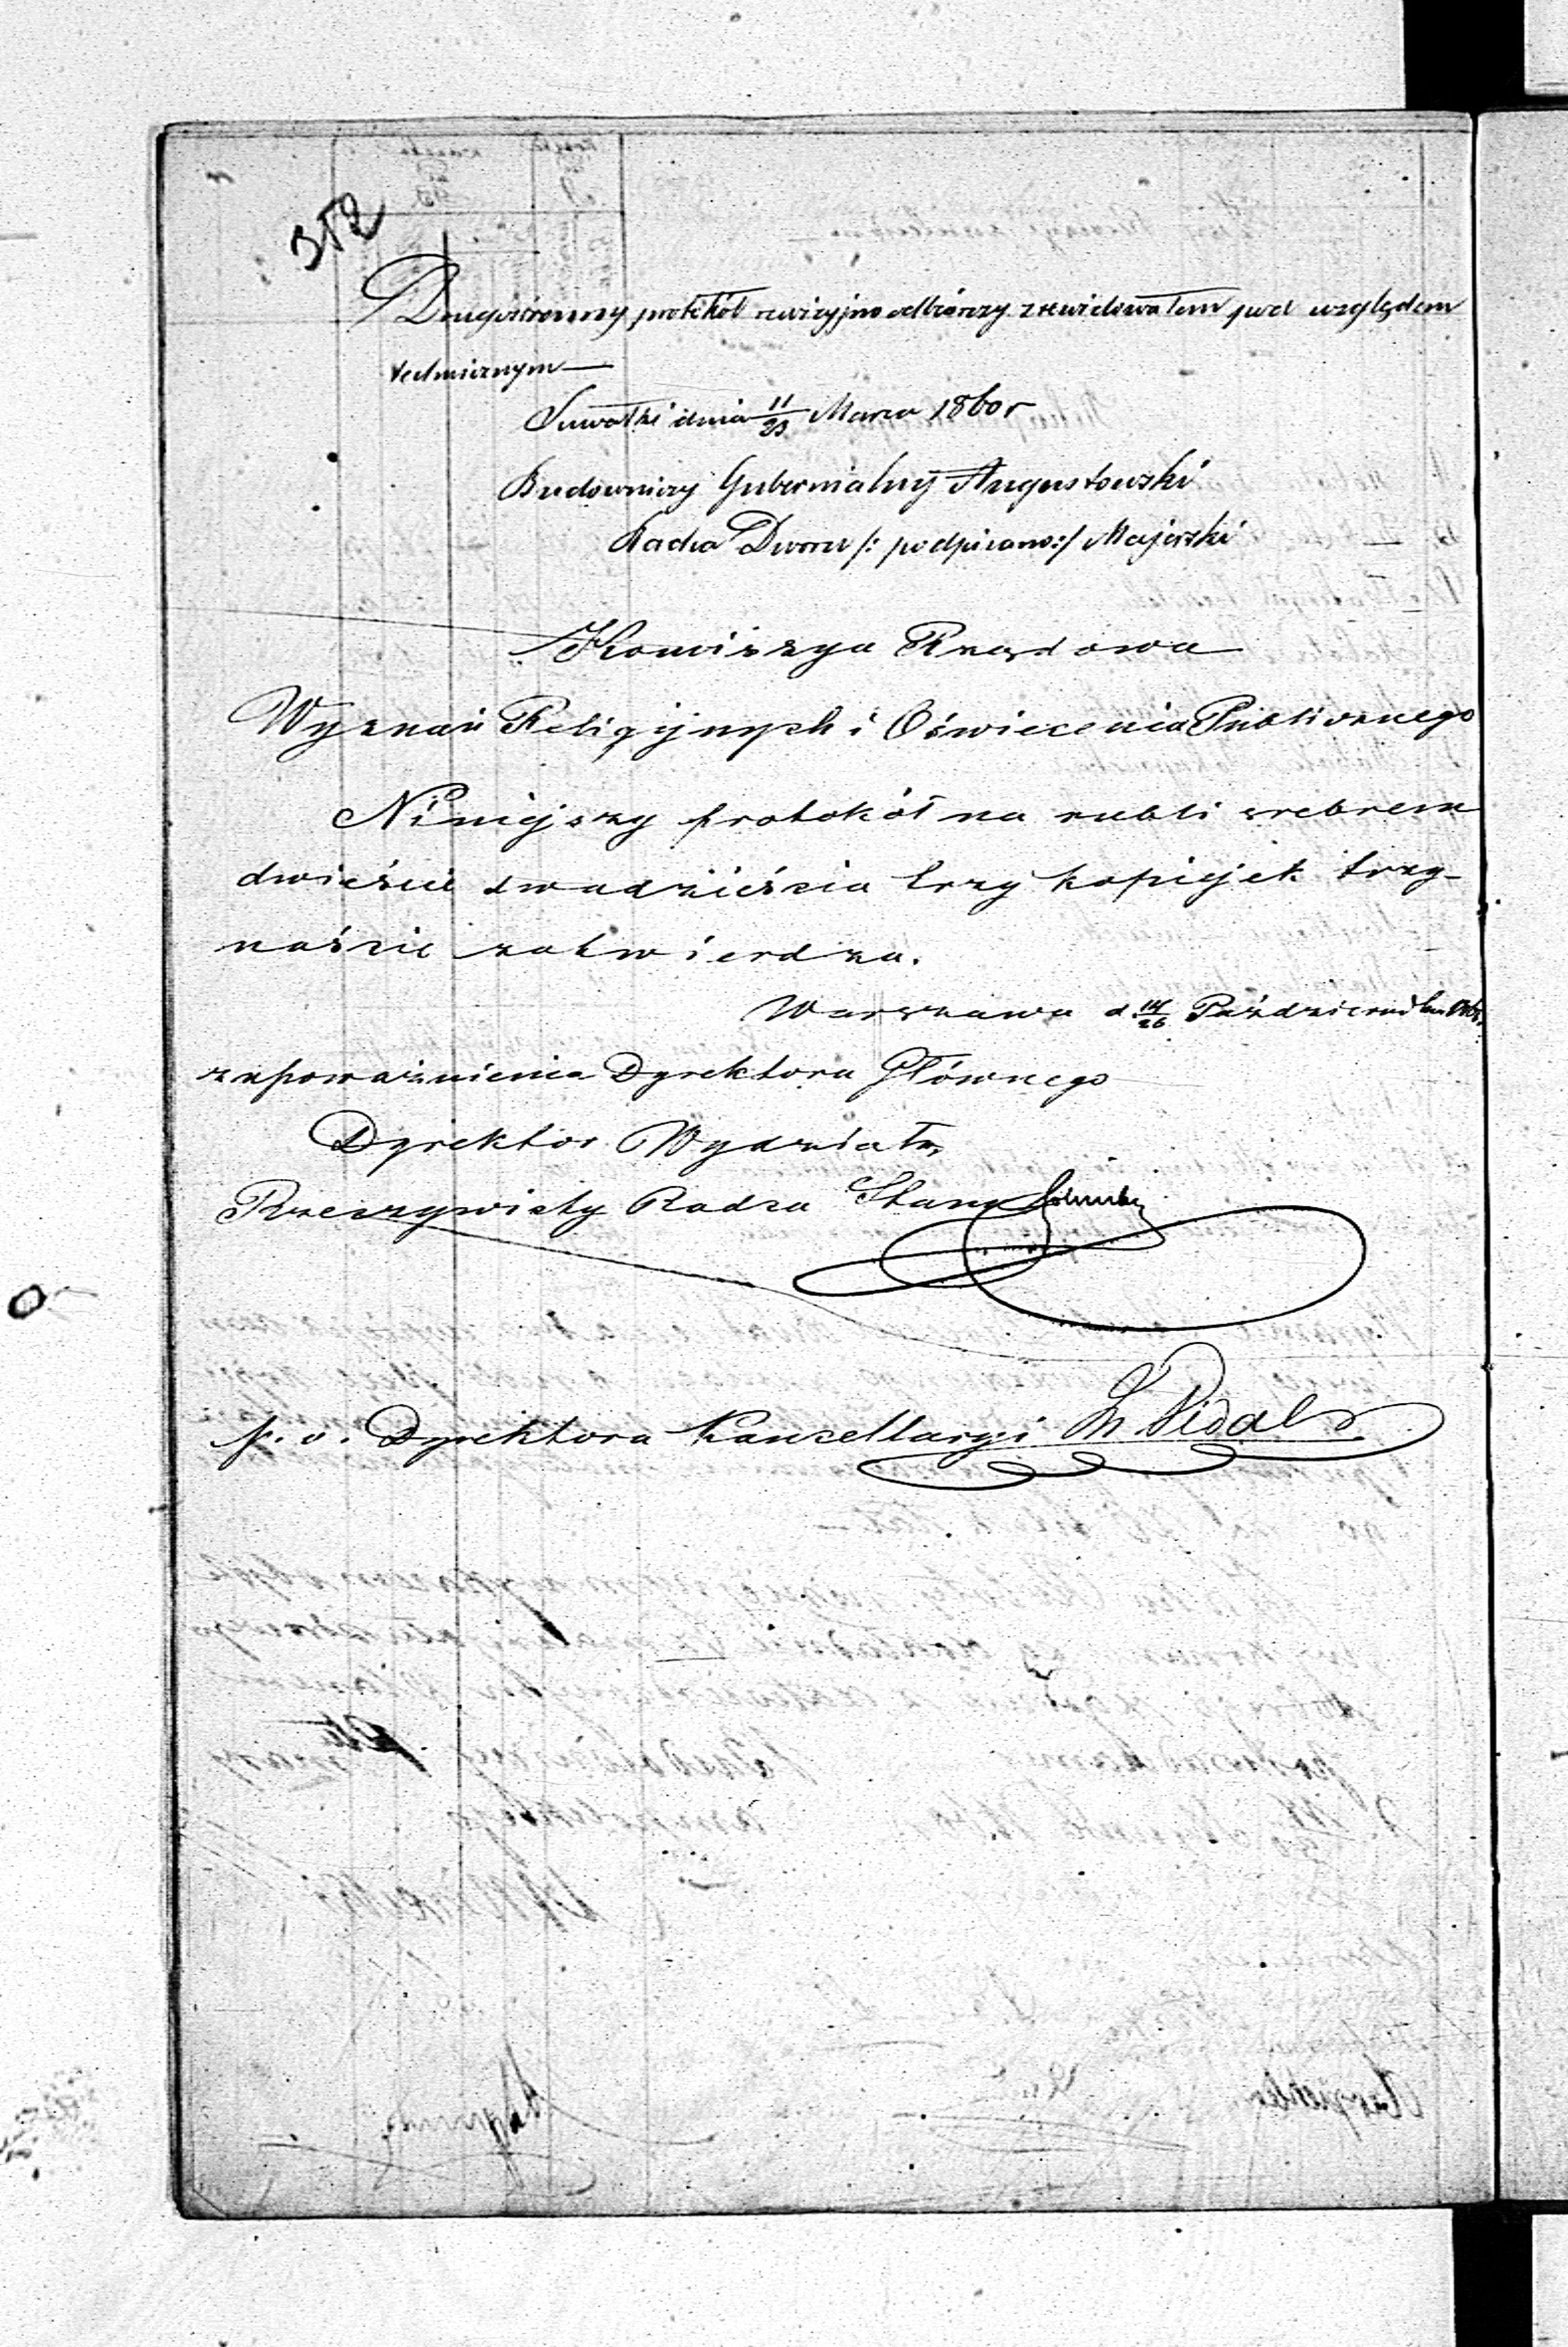 352
Drugostronny protokół rewizyjno odbiorczy zrewidowałem pod względem
technicznym —
Suwałki dnia 11/23 Marca 1860 r
Budowniczy Gubernialny Augustowski
Radca Dworu /: podpisano :/ Majerski
Kommissya Rządowa
Wyznań Religijnych i Oświecenia Publicznego
Niniejszy protokół na rubli srebrem
dwieście dwadzieścia trzy kopiejek trzy-
naście zatwierdza.
Warszawa d. 14/26 Października 1860 r.
z upoważnienia Dyrektora Głównego
Dyrektor Wydziału,
Rzeczywisty Radca Stanu
p. o. Dyrektora Kancellaryi Vidal